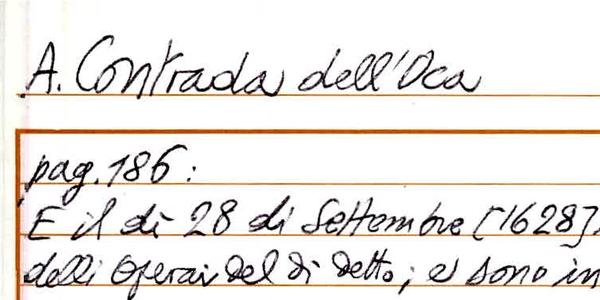 A. Contrada dell'Oca
pag. 186:
E il di 28 di Settembre [1628]
delli Operai del di detto; e sono in